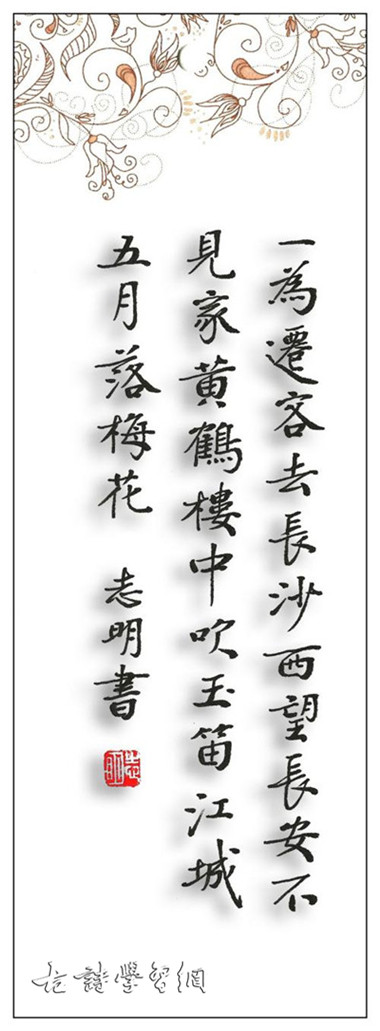 一為遷客去長沙西望長安不
見家黃鶴樓中吹玉笛江城
五月落梅花 志明書
志明
古詩學習網